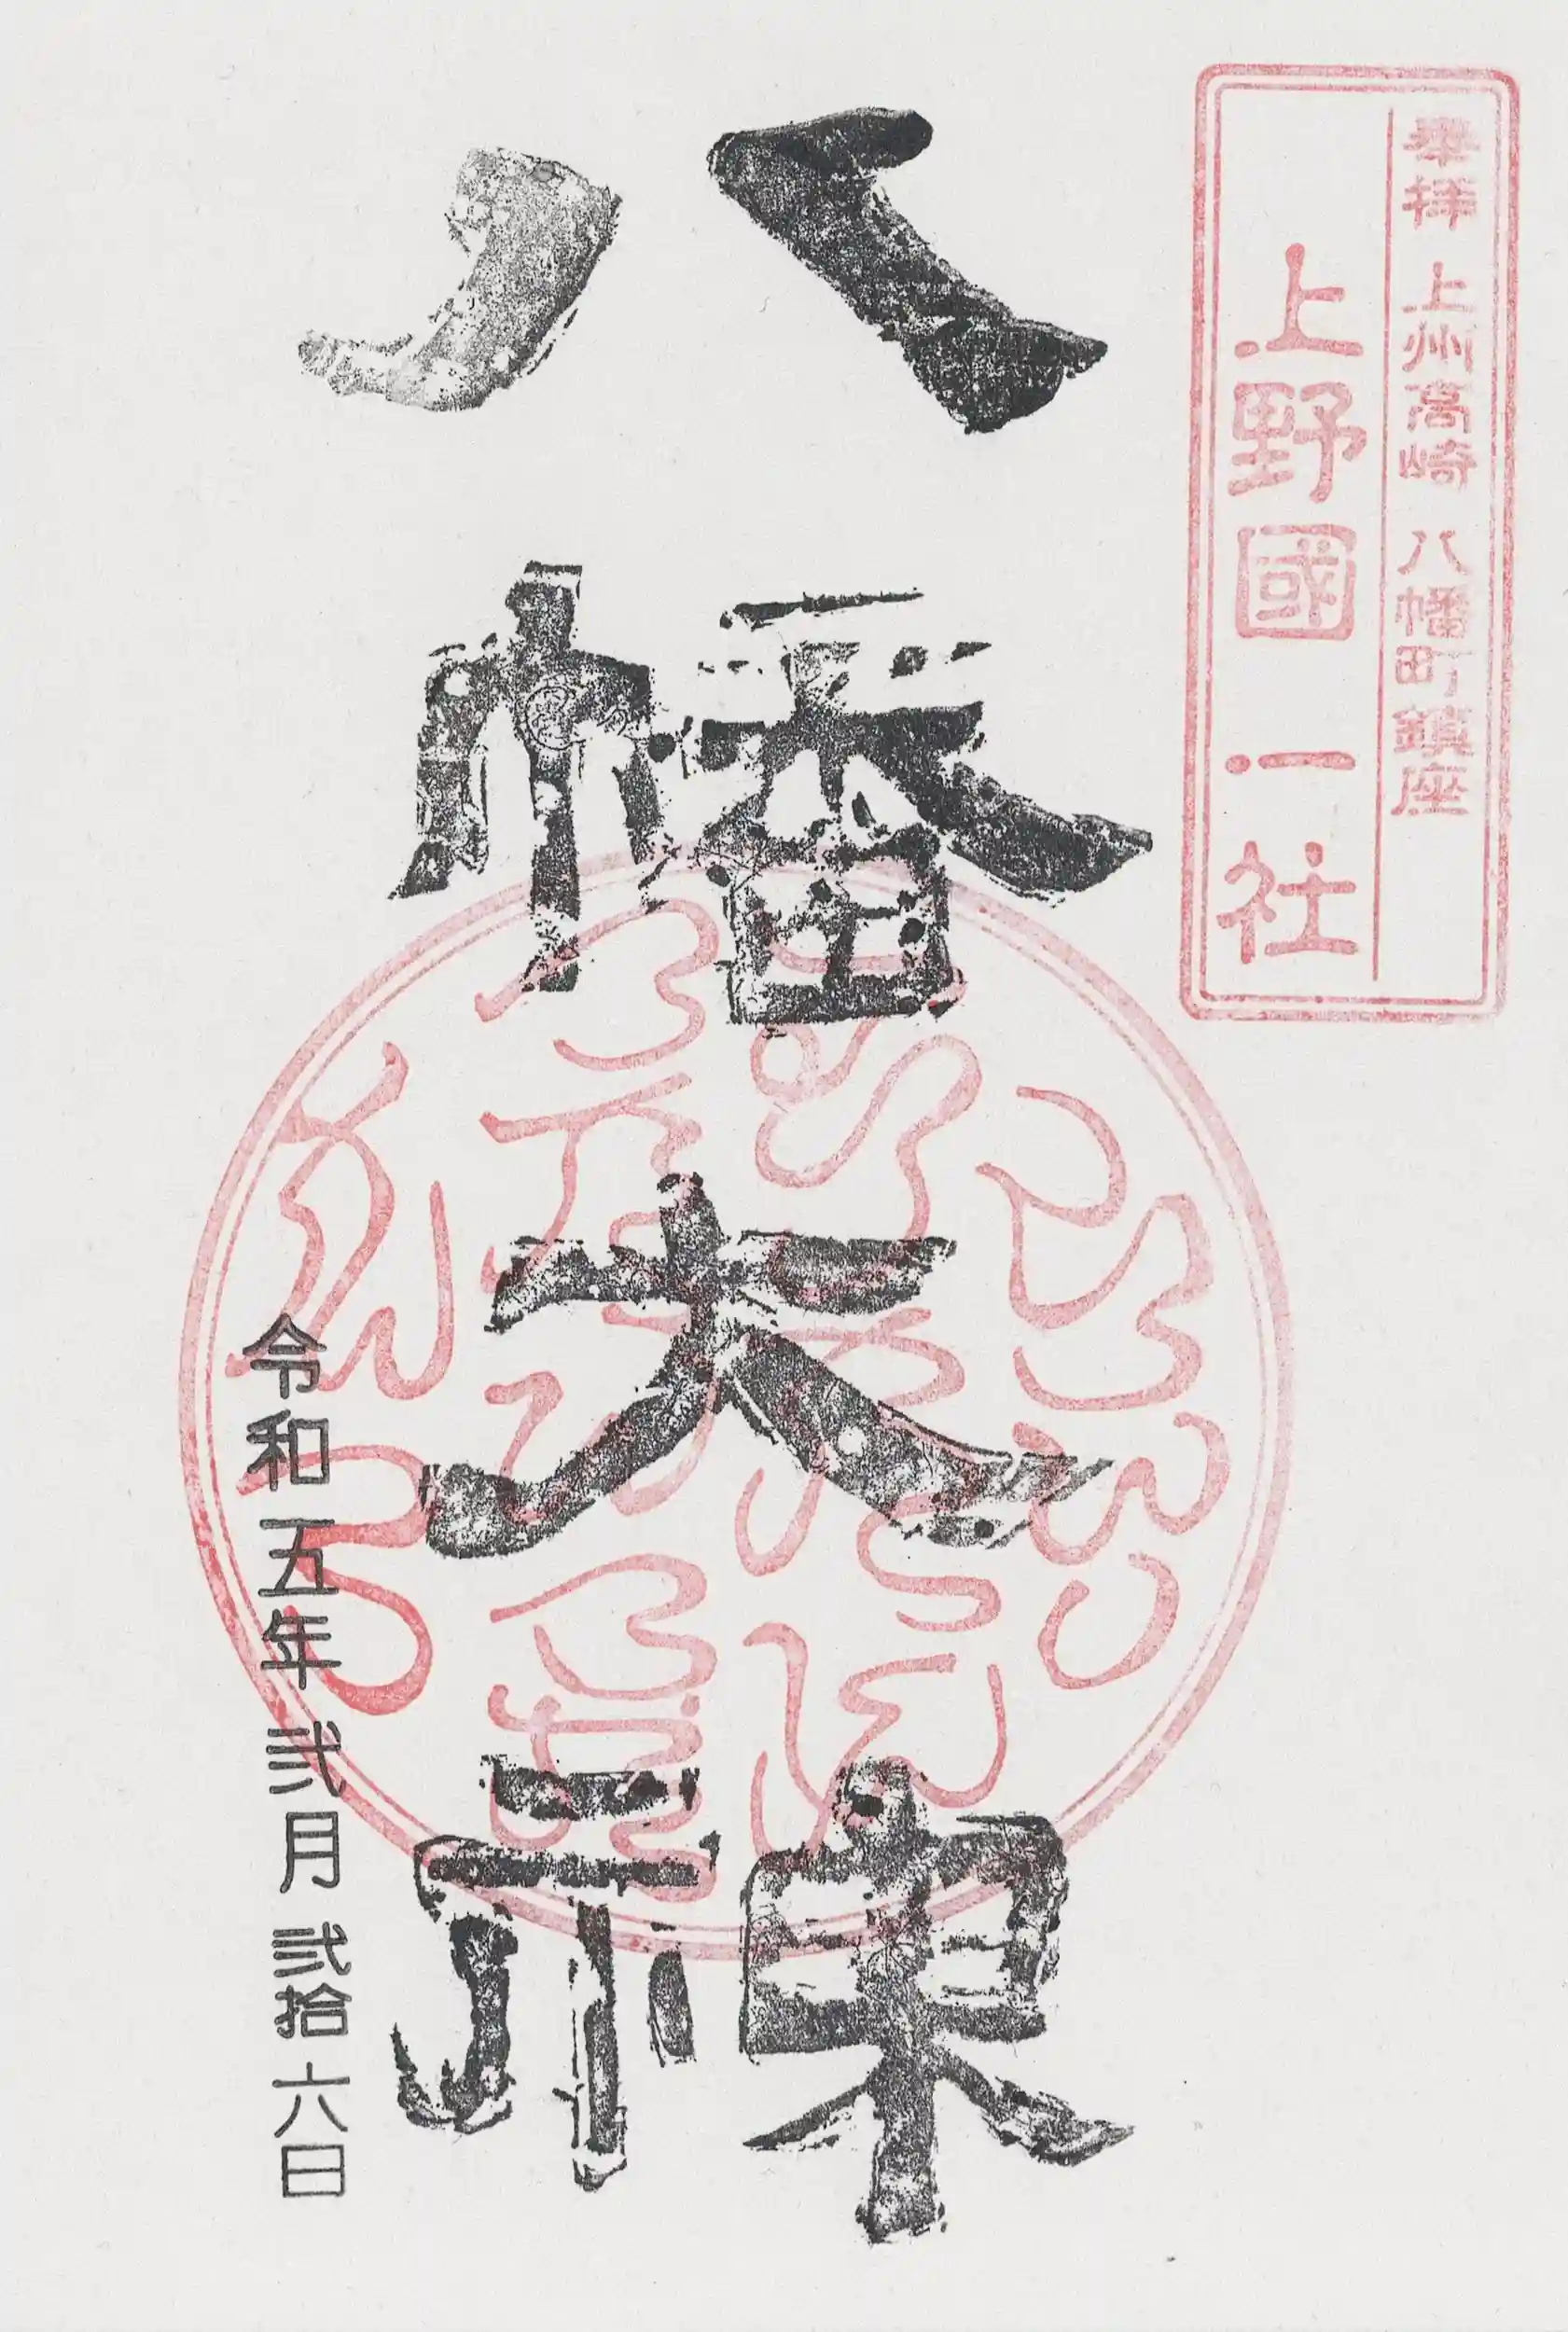 奉拝 上州高崎 八幡町鎮座
上野國一社
八幡大神
令和五年弐月弐拾六日